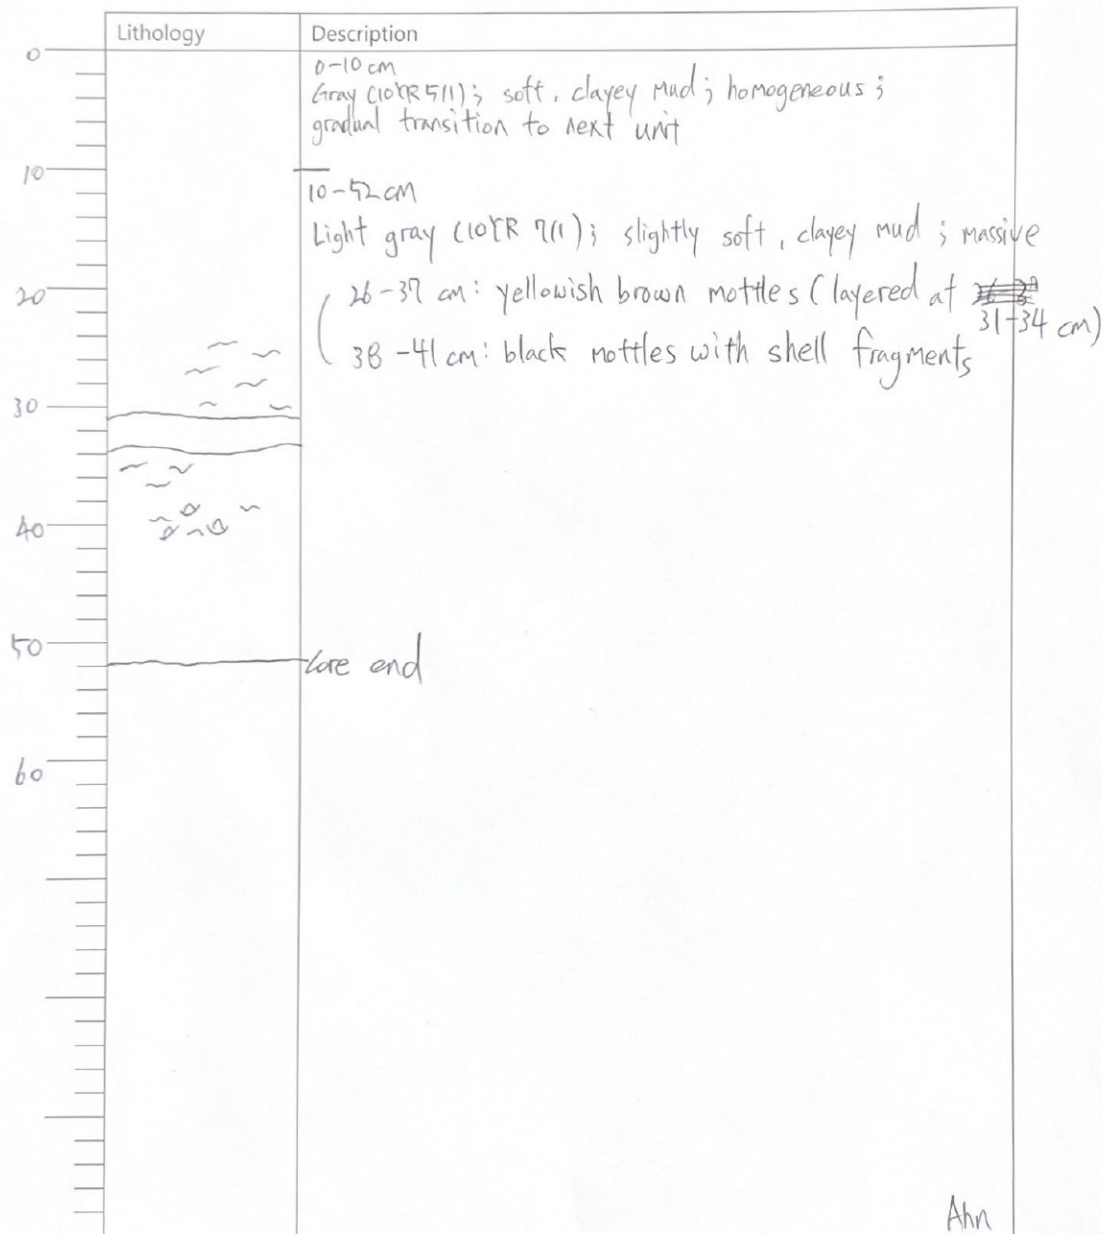 Lithology Description
0
0-10 cm
Gray (10YR 5/1); soft, clayey mud; homogeneous;
gradual transition to next unit
10
10-52 cm
Light gray (10YR 7/1); slightly soft, clayey mud; massive
20
26-37 cm: yellowish brown mottles (layered at
31-34 cm)
38-41 cm: black mottles with shell fragments
30
40
50
Core end
60
Ahn